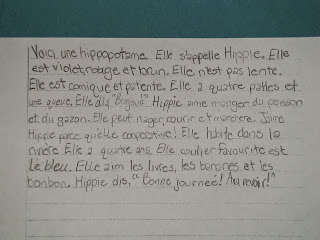 Voici une hippopotame. Elle s'appelle Hippie. Elle
est violet, rouge et brun. Elle n'est pas lente.
Elle est comique et patente. Elle a quatre pattes et
une queue. Elle dis "Bonjour!" Hippie aime manger du poisson
et du gazon. Elle peut nager, courir et mordere. J'aime
Hippie parce qu'elle coopective! Elle habite dans la
rivière Elle a quatre ans. Elle couljer favourite est
le bleu. Elle aim les livres, les banones et les
bonbon. Hippie dis, "Bonne journée! Au revoir!"